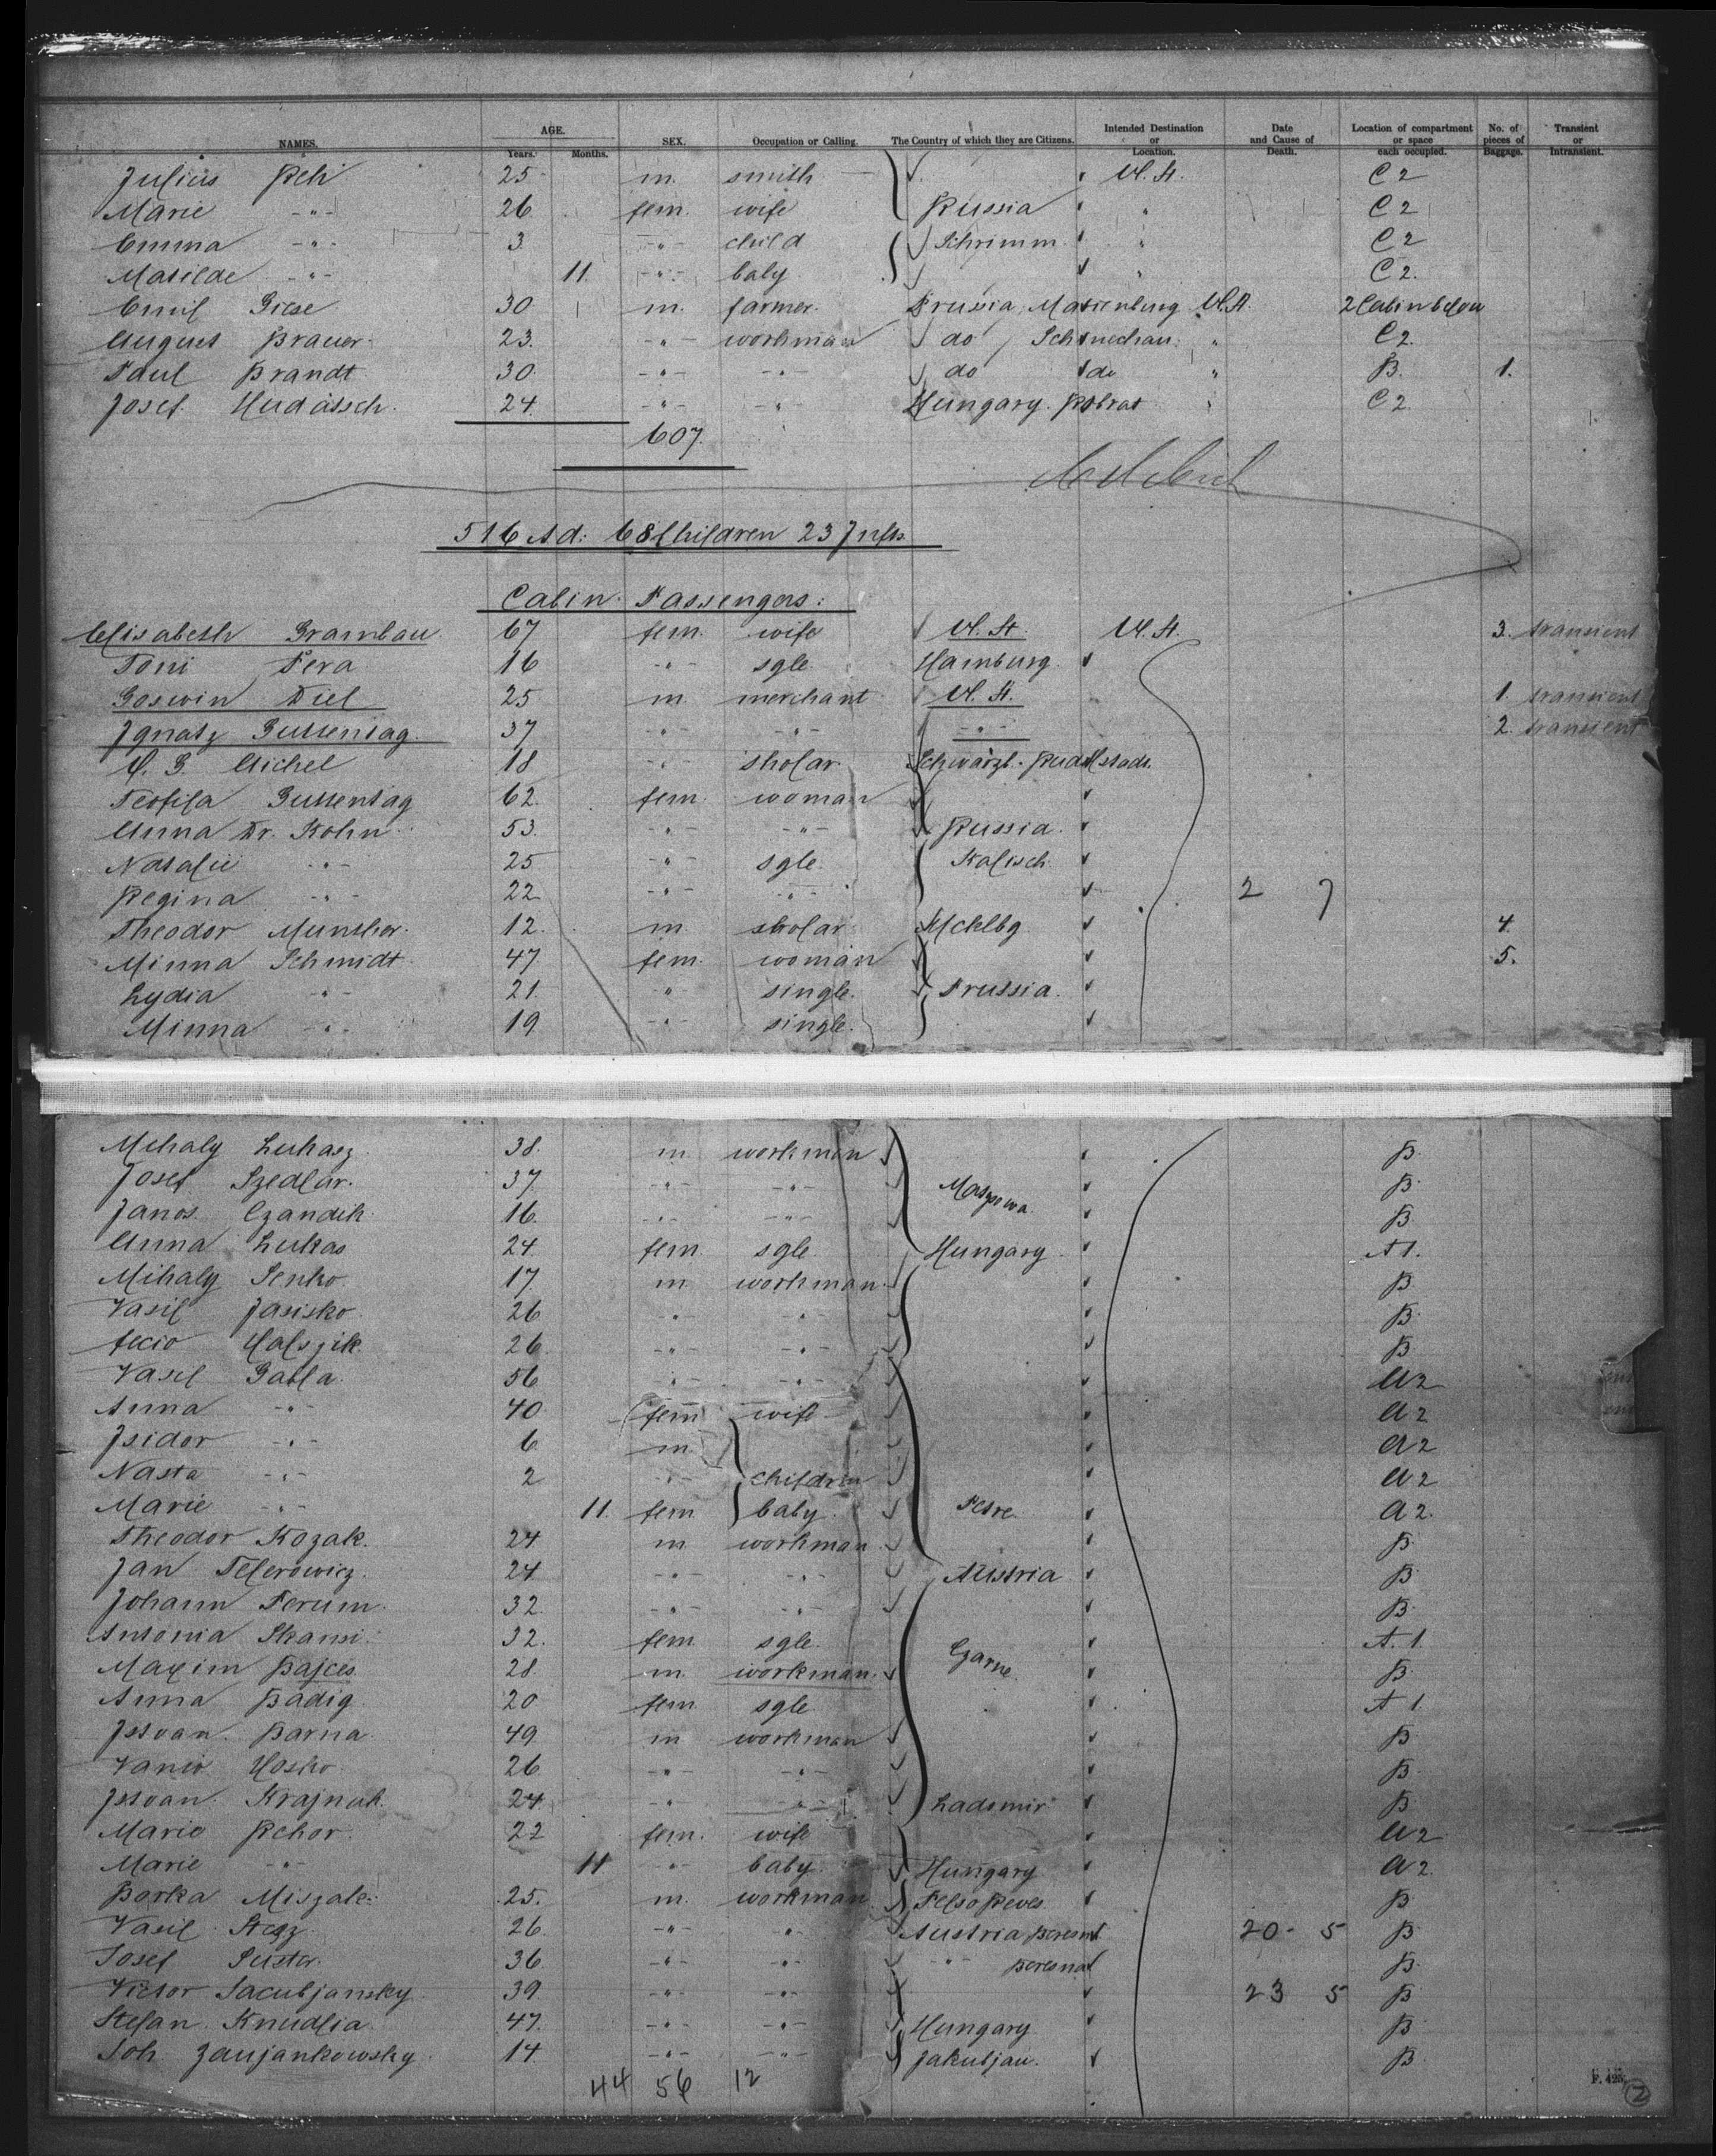 NAMES. AGE. Years. Months. SEX. Occupation or Calling. The Country of which they are Citizens. Intended Destination or Location. Date and Cause of Death. Location of compartment or space each occupied. No. of pieces of Baggage. Transient or Intransient.
Julius 25 m. smith U. St. C 2
Marie -"- 26 fem. wife Russia " C 2
Emma -"- 3 -"- child Schrimm " C 2
Matilde -"- 11. -"- baby " C 2.
Emil Giese 30 m. farmer. Prussia, Marienburg U.St. 2 Cabin below
August Brauer 23. -"- workman do Schwechau " C 2.
Paul Brandt 30. -"- -"- do do " B. 1.
Josef Hudassch. 24. -"- -"- Hungary. " C 2
607.
516 Ad: 68 Children 23 Infts.
Cabin Passengers:
Elisabeth Grambau 67 fem. wife U. St. U. St. 3. transient
Toni Pera 16 -"- sgle Hamburg
Goswin Diel 25 m. merchant U. St. 1. transient
Ignatz Guttentag. 37 -"- -"- -"- 2. transient
Michel 18 -"- sholar Schwarzb. Rudolstadt.
Teofila Guttentag 62. fem. woman
Anna Dr. Kohn 53. -"- -"- Russia.
Natalie -"- 25 -"- sgle Kalisch
Regina -"- 22 -"- -"- 2 7
Theodor Munther. 12. m. sholar Mcklbg 4.
Minna Schmidt. 47 fem. woman 5.
Lydia -"- 21. " single. Prussia.
Minna -"- 19 -"- single.
Mihaly Luhasz 38. m workman B.
Josef Szedlar. 37 -"- -"- B.
Janos Czandik 16. -"- -"- B
Anna Lukas 24. fem sgle. Hungary A 1.
Mihaly Senko 17 m workman B
Vasil Jasisko 26 -"- -"- B.
Fecio Halszik 26 -"- -"- B
Vasil Gabla 56 -"- -"- A 2
Anna -"- 40 fem wife A 2
Isidor -"- 6 m A 2
Nasta -"- 2 -"- children A 2
Marie -"- 11. fem baby Petre A 2.
Theodor Kozak. 24 m workman B.
Jan Pelerowicz. 24 -"- -"- Austria B
Johann Ferum 32 -"- -"- B.
Antonia Skansi 32. fem sgle. Czarne A. 1
Maxim Bajces 28. m. workman. B.
Anna Badig 20 fem sgle A 1
Istvan Barna 49 m workman B.
Vanio Hosko 26 -"- -"- B.
Istvan Krajnak. 24 -"- -"- Ladomir B
Marie Rehor 22 fem. wife A 2
Marie -"- 11 -"- baby. Hungary A 2.
Borka Miszak. 25. m. workman Felso Reves B
Vasil 26 -"- " Austria 20 5 B
Josef Suster. 36 -"- -"- -"- B.
Victor Jacubjansky 39 -"- -"- 23 5 B
Stefan Knudlia 47. -"- -"- Hungary B.
Joh Zaujankowsky 14. -"- -"- Jakubjau. B.
44 56 12
F. 425.
2